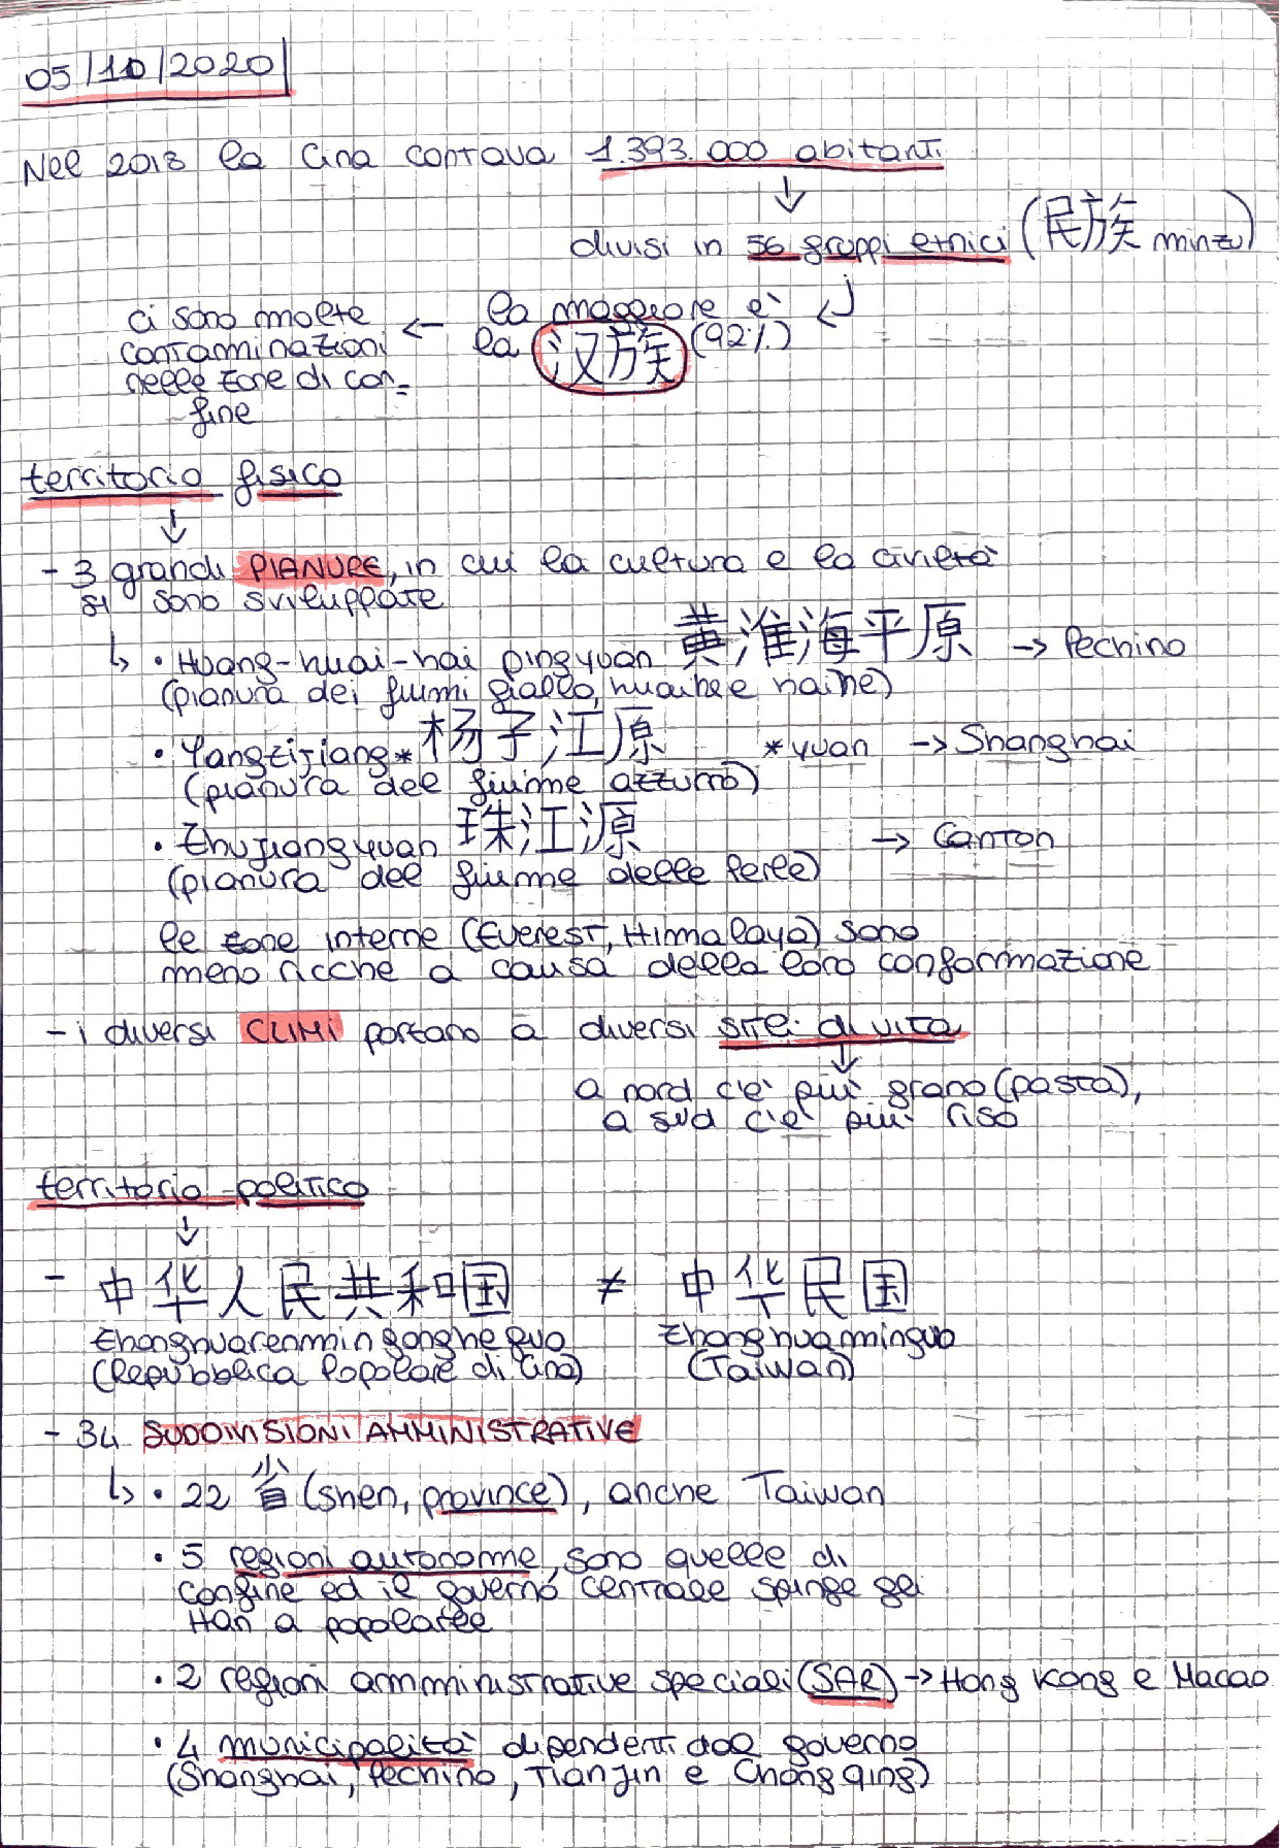 05/10/2020
Nel 2018 la Cina contava 1.393.000 abitanti
↓
divisi in 56 gruppi etnici (民族 minzu)
la maggiore è
la 汉族 (92%)
← ci sono molte
contaminazioni
nelle zone di con-
fine
territorio fisico
↓
- 3 grandi PIANURE, in cui la cultura e la civiltà
si sono sviluppate
↳ • Huang-huai-hai pingyuan 黄淮海平原 → Pechino
(pianura dei fiumi giallo, huaihe e haihe)
• Yangzijiang* 杨子江原 *yuan → Shanghai
(pianura del fiume azzurro)
• Zhujiangyuan 珠江源 → Canton
(pianura del fiume delle Perle)
le zone interne (Everest, Himmalaya) sono
meno ricche a causa della loro conformazione
- i diversi CLIMI portano a diversi stili di vita
↓
a nord c'è più grano (pasta),
a sud c'è più riso
territorio politico
↓
- 中华人民共和国 ≠ 中华民国
Zhonghuarenmingongheguo Zhonghuaminguo
(Repubblica Popolare di Cina) (Taiwan)
- 34 SUDDIVISIONI AMMINISTRATIVE
↳ • 22 省 (shen, province), anche Taiwan
• 5 regioni autonome, sono quelle di
confine ed il governo centrale spinge gli
Han a popolarle
• 2 regioni amministrative speciali (SAR) → Hong Kong e Macao
• 4 municipalità dipendenti dal governo
(Shanghai, Pechino, Tianjin e Chongqing)